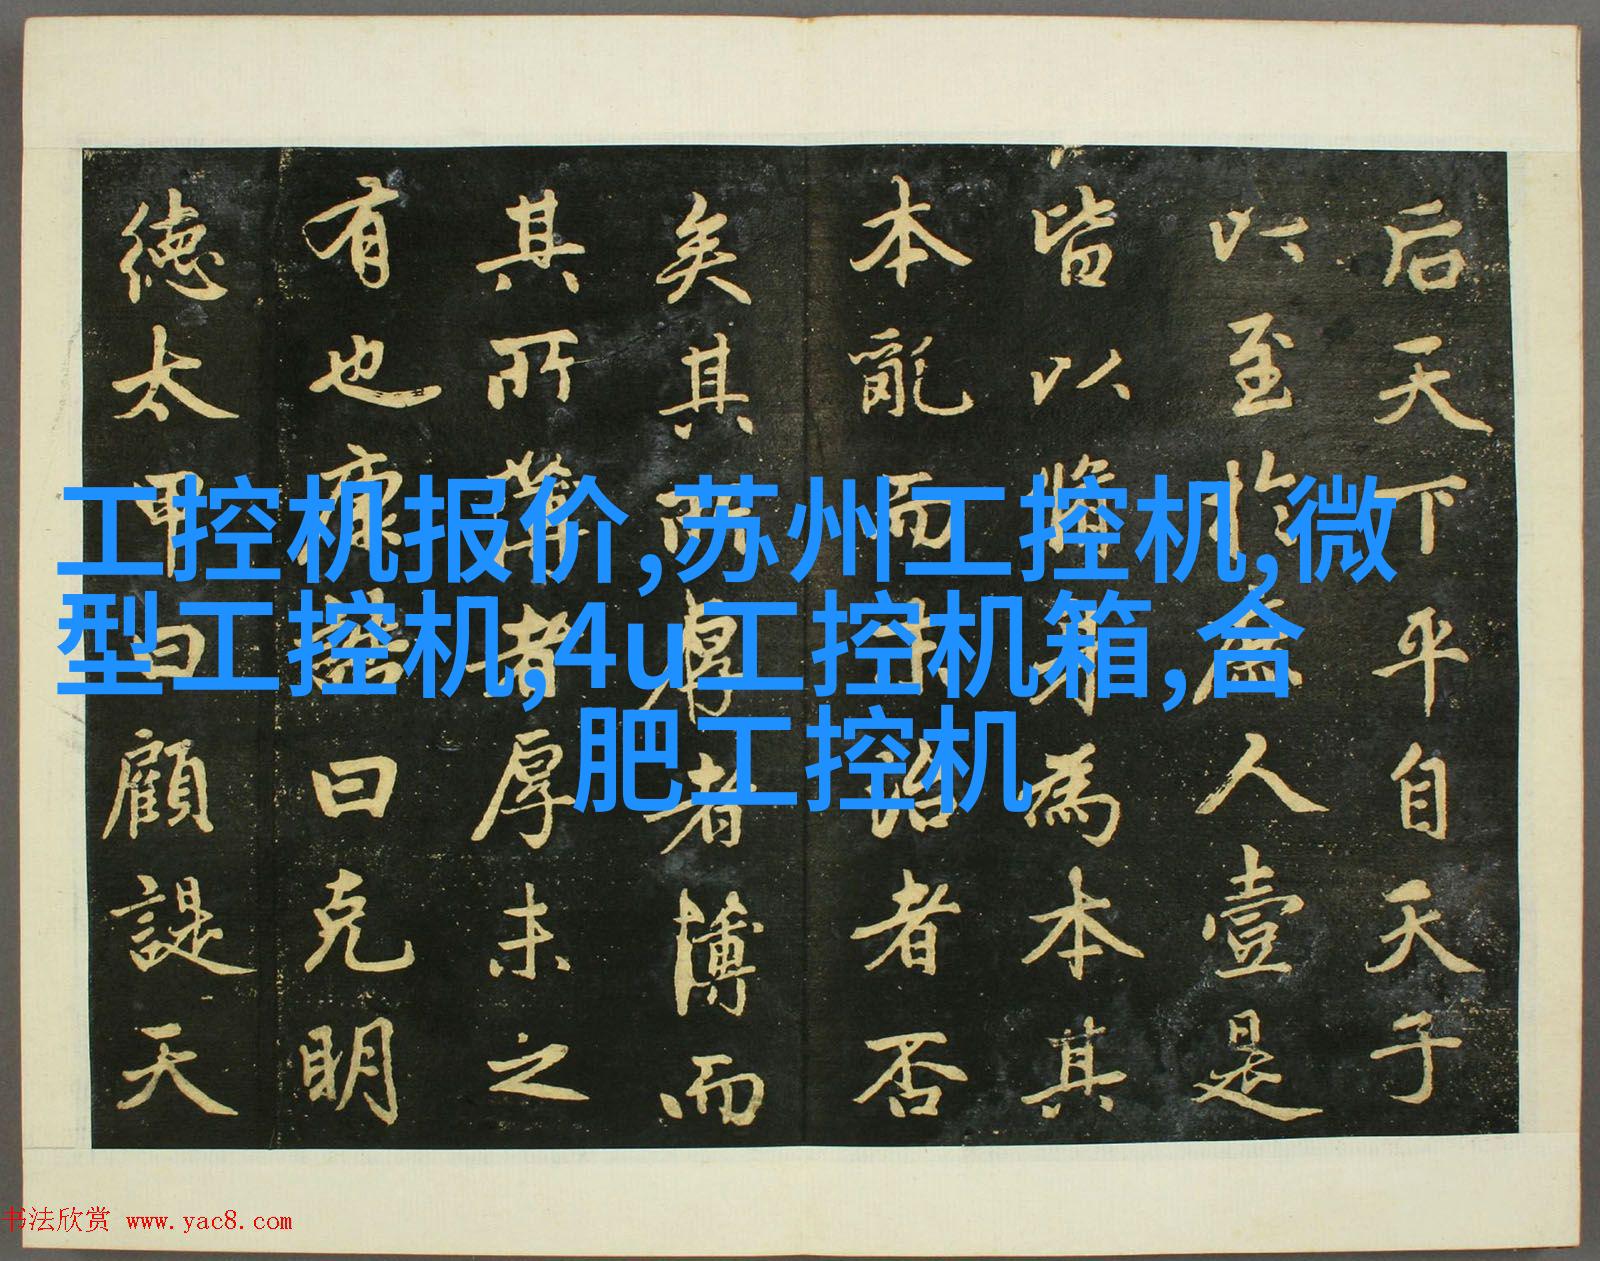 后天下平自天子
以至於庶人壹是
皆以脩身為本其
本亂而末治者否
矣其所厚者薄而
其所薄者厚未之
有也康誥曰克明
德太甲曰顧諟天
工控机报价,苏州工控机,微
型工控机,4u工控机箱,合
肥工控机
书法欣赏 www.yac8.com